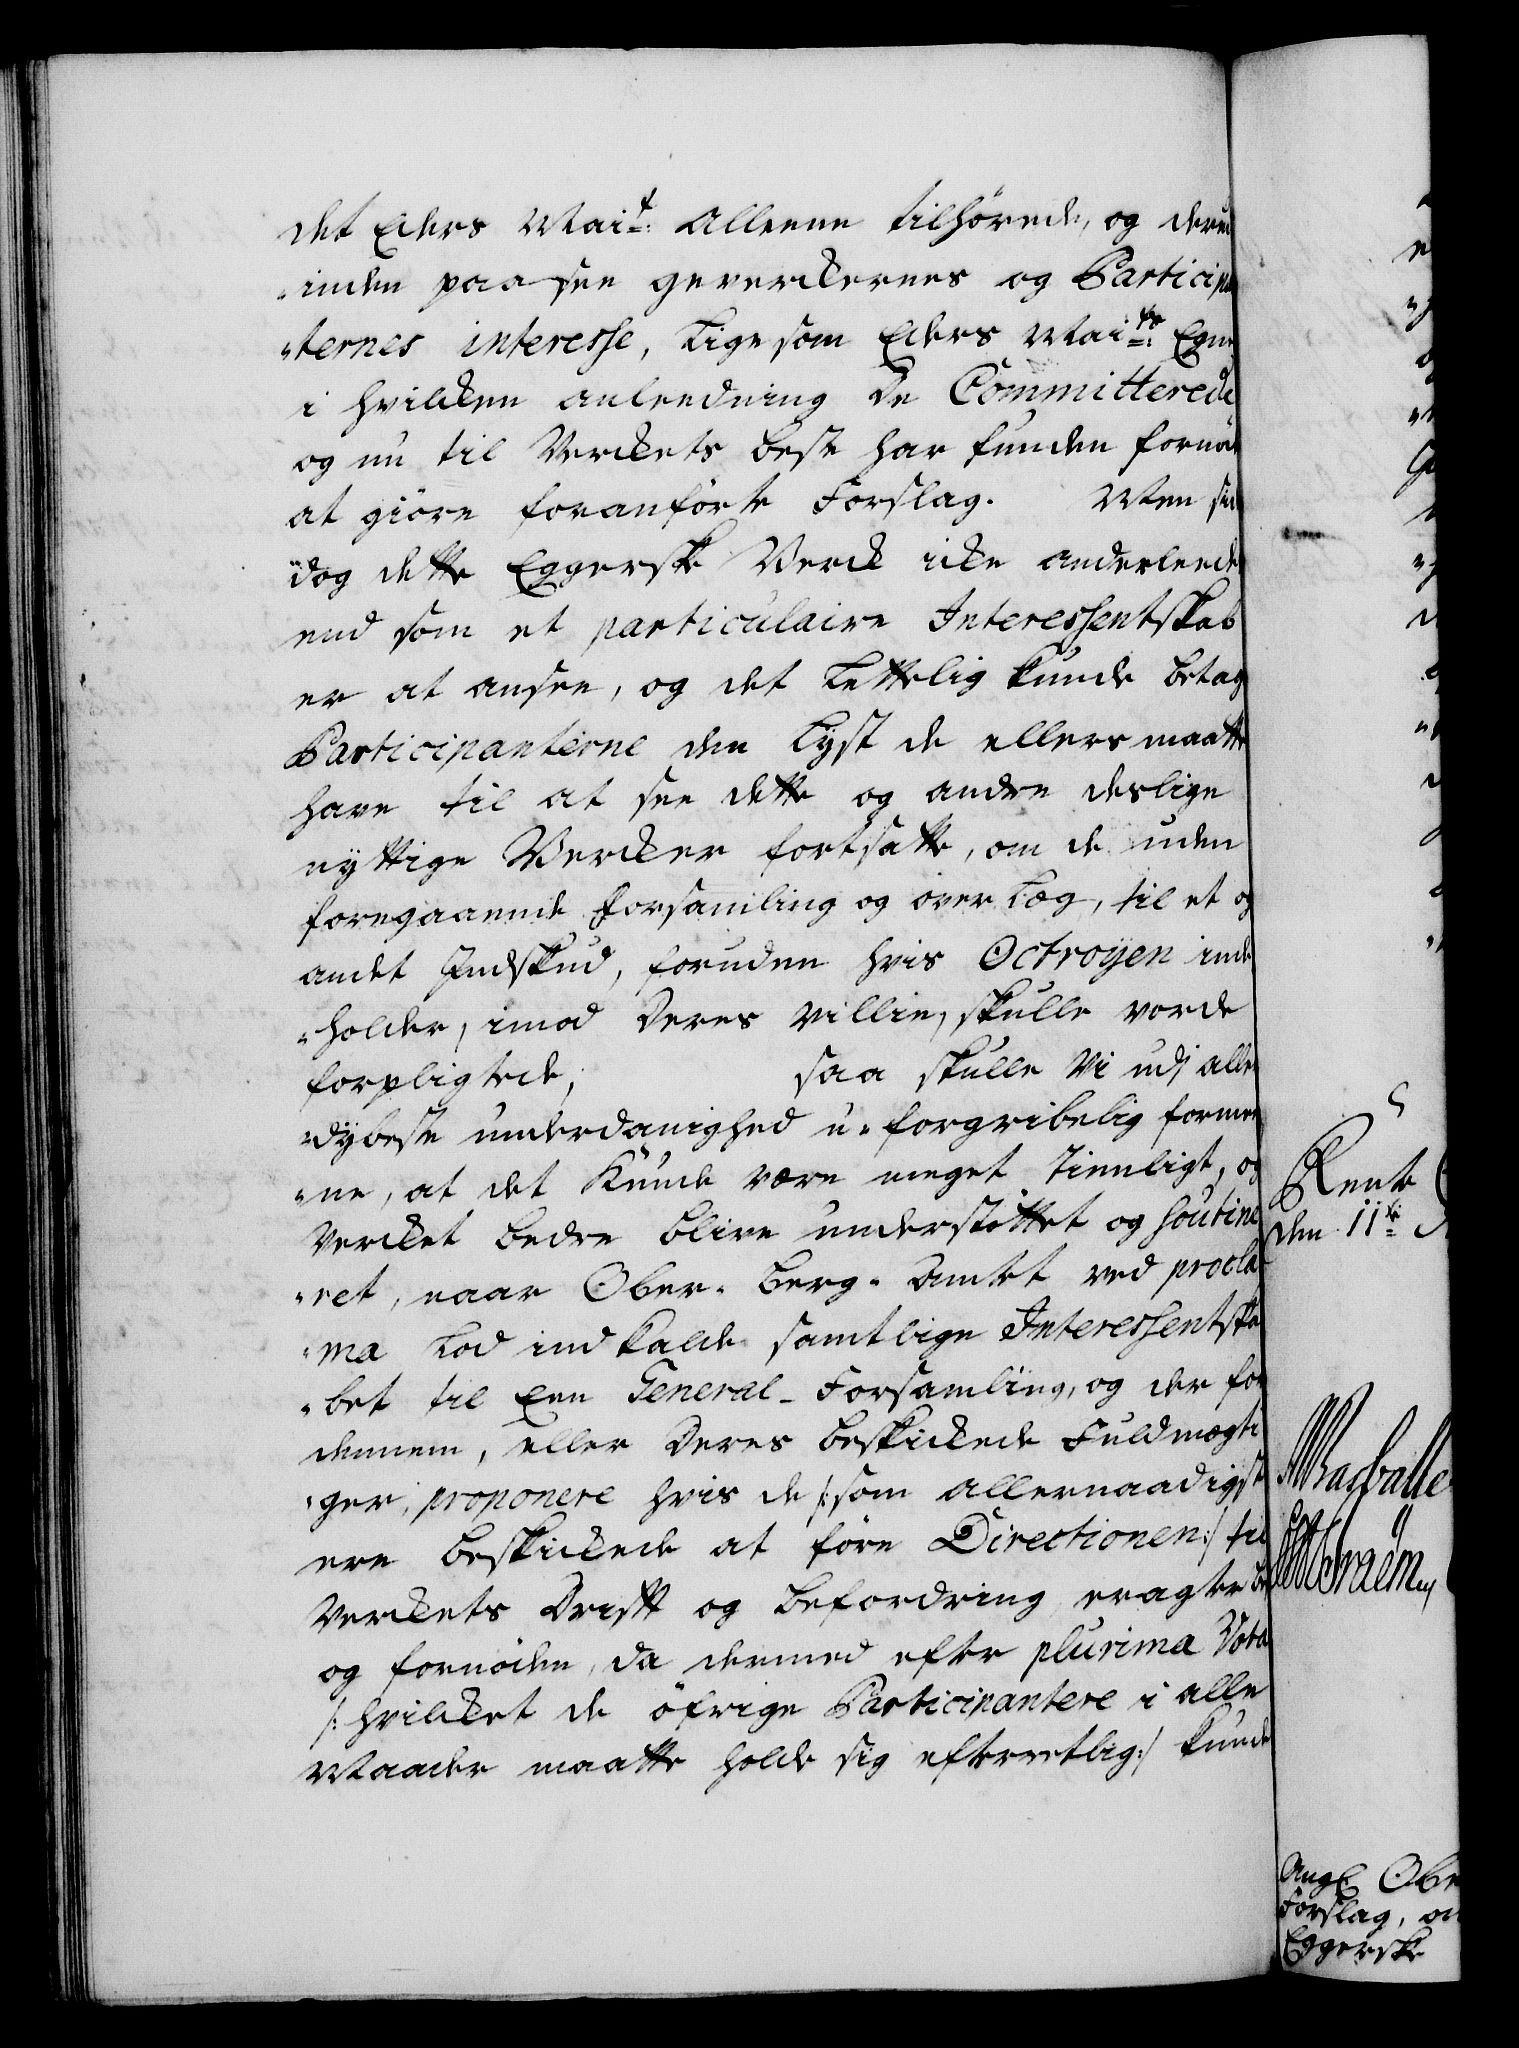 det Eders Mai:t Alleene tilhørede, og derud
„inden paasee geverckernes og Particip
„ternes interesse, Ligesom Eders Mai:ts Egne
i hvilcken anleedning De Committerede
og nu til Verckets beste har funden fornö
at giöre foranförte Forslag. Men si
dog dette Eggerske Verck icke anderleede
end som et particulaire Interessentskab
er at ansee, og det Lettelig kunde betag
Participanterne den Lyst de ellers maatte
have til at see dette og andre deslige
nyttige Vercker fortsatte, om de uden
foregaaende forsamling og overlæg, til et og
andet Indskud, foruden hvis Octroyen inde
„holder, imod Deres Villie, skulle vorde
forpligtede, saa skulle Vi udj aller
„dybeste underdanighed u-forgribelig formee
„ne, at det Kunde være meget tienligt, og
Vercket bedre blive understöttet og soutine
„ret, naar Ober-Berg-Amtet ved procla
„ma Lod indkalde samtlige Interessentska
„bet til Een General-Forsamling, og der for
dennem, eller Deres beskickede Fuldmægti
„ger, proponere hvis de /: som allernaadigst
ere beskickede at føre Directionen :/ til
Verckets Drift og befordring eragter be
og fornøden, da dermed efter plurima Vota
/: hvilcket de öfrige Participantere i alle
Maader maatte holde sig efterretlig :/ kunde
Rente
den 11te
Ang: Obe
Forslag, om
Eggerske